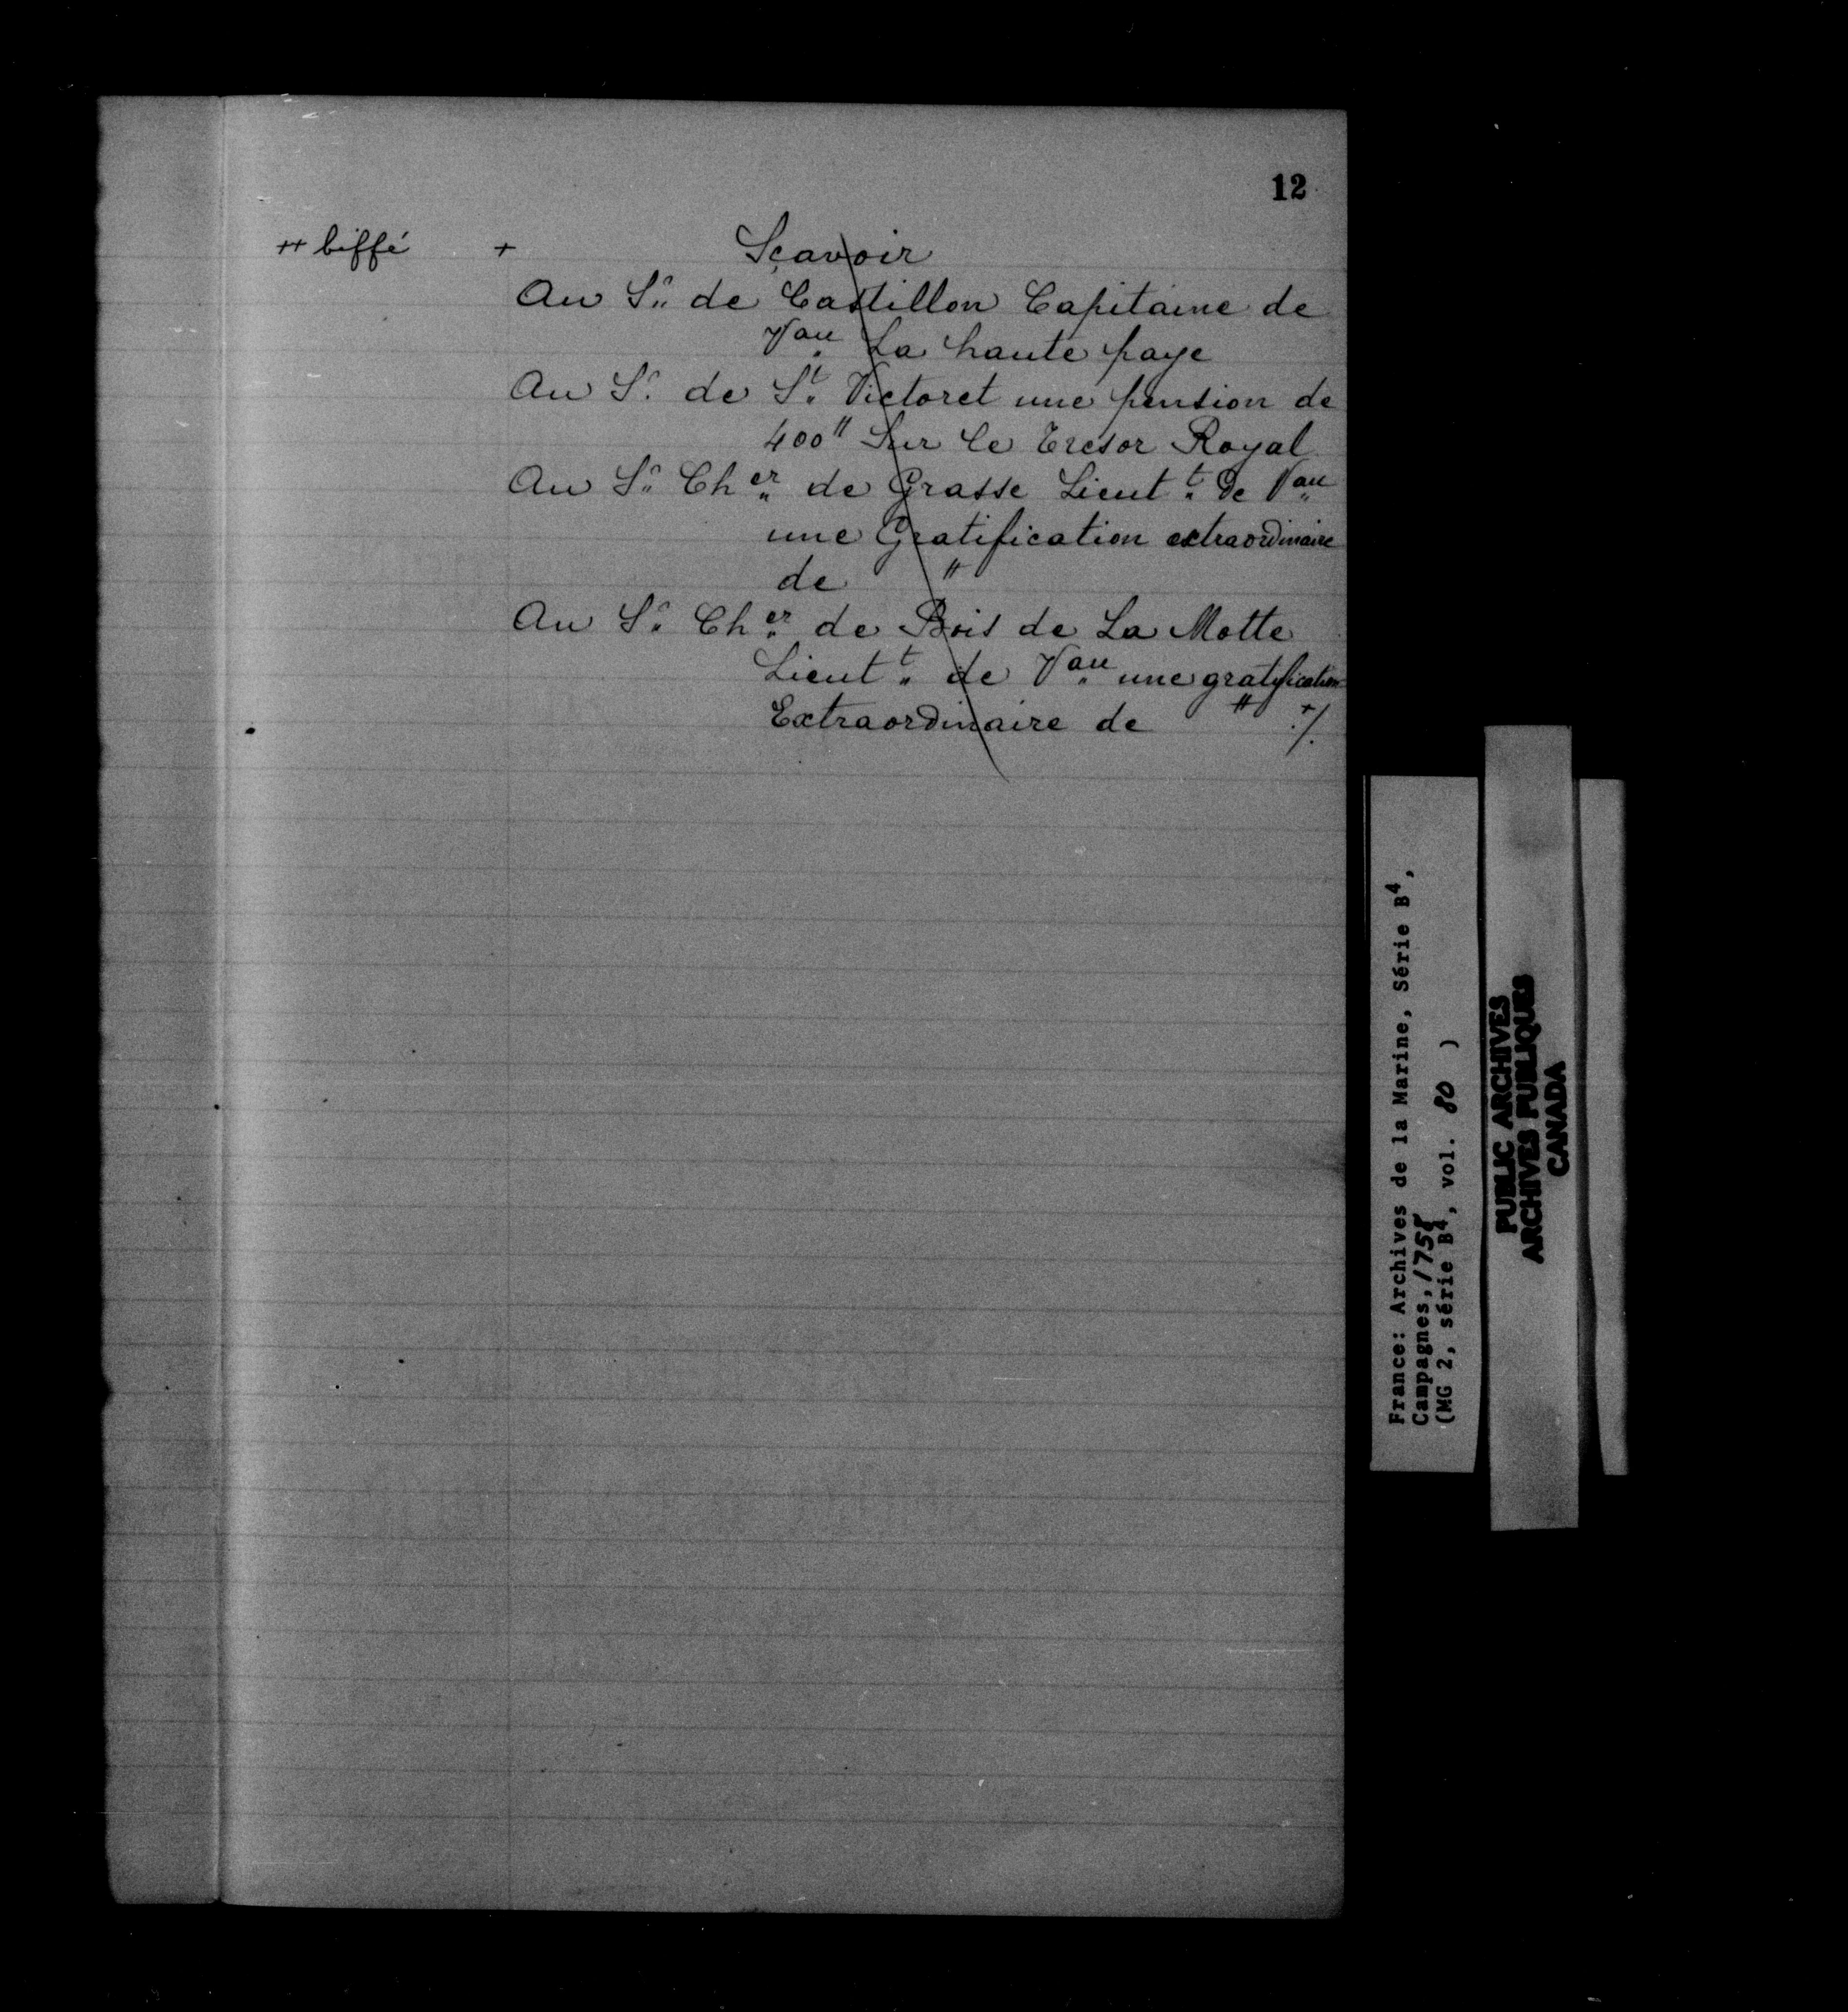 12
++ biffé + Sçavoir
Au Sr. de Castillon Capitaine de
Vau. La haute paye
Au Sr. de St. Victoret une pension de
400" Sur le Tresor Royal
Au Sr. Cher. de Grasse Lieutt. De Vau.
une Gratification extraordinaire
de "
Au Sr. Cher. de Bois de La Motte
Lieutt. de Vau. une gratification
Extraordinaire de " +/.
France: Archives de la Marine, Série B4,
Campagnes,
(MG 2, série B4, vol. 80 )
PUBLIC ARCHIVES
ARCHIVES PUBLIQUES
CANADA